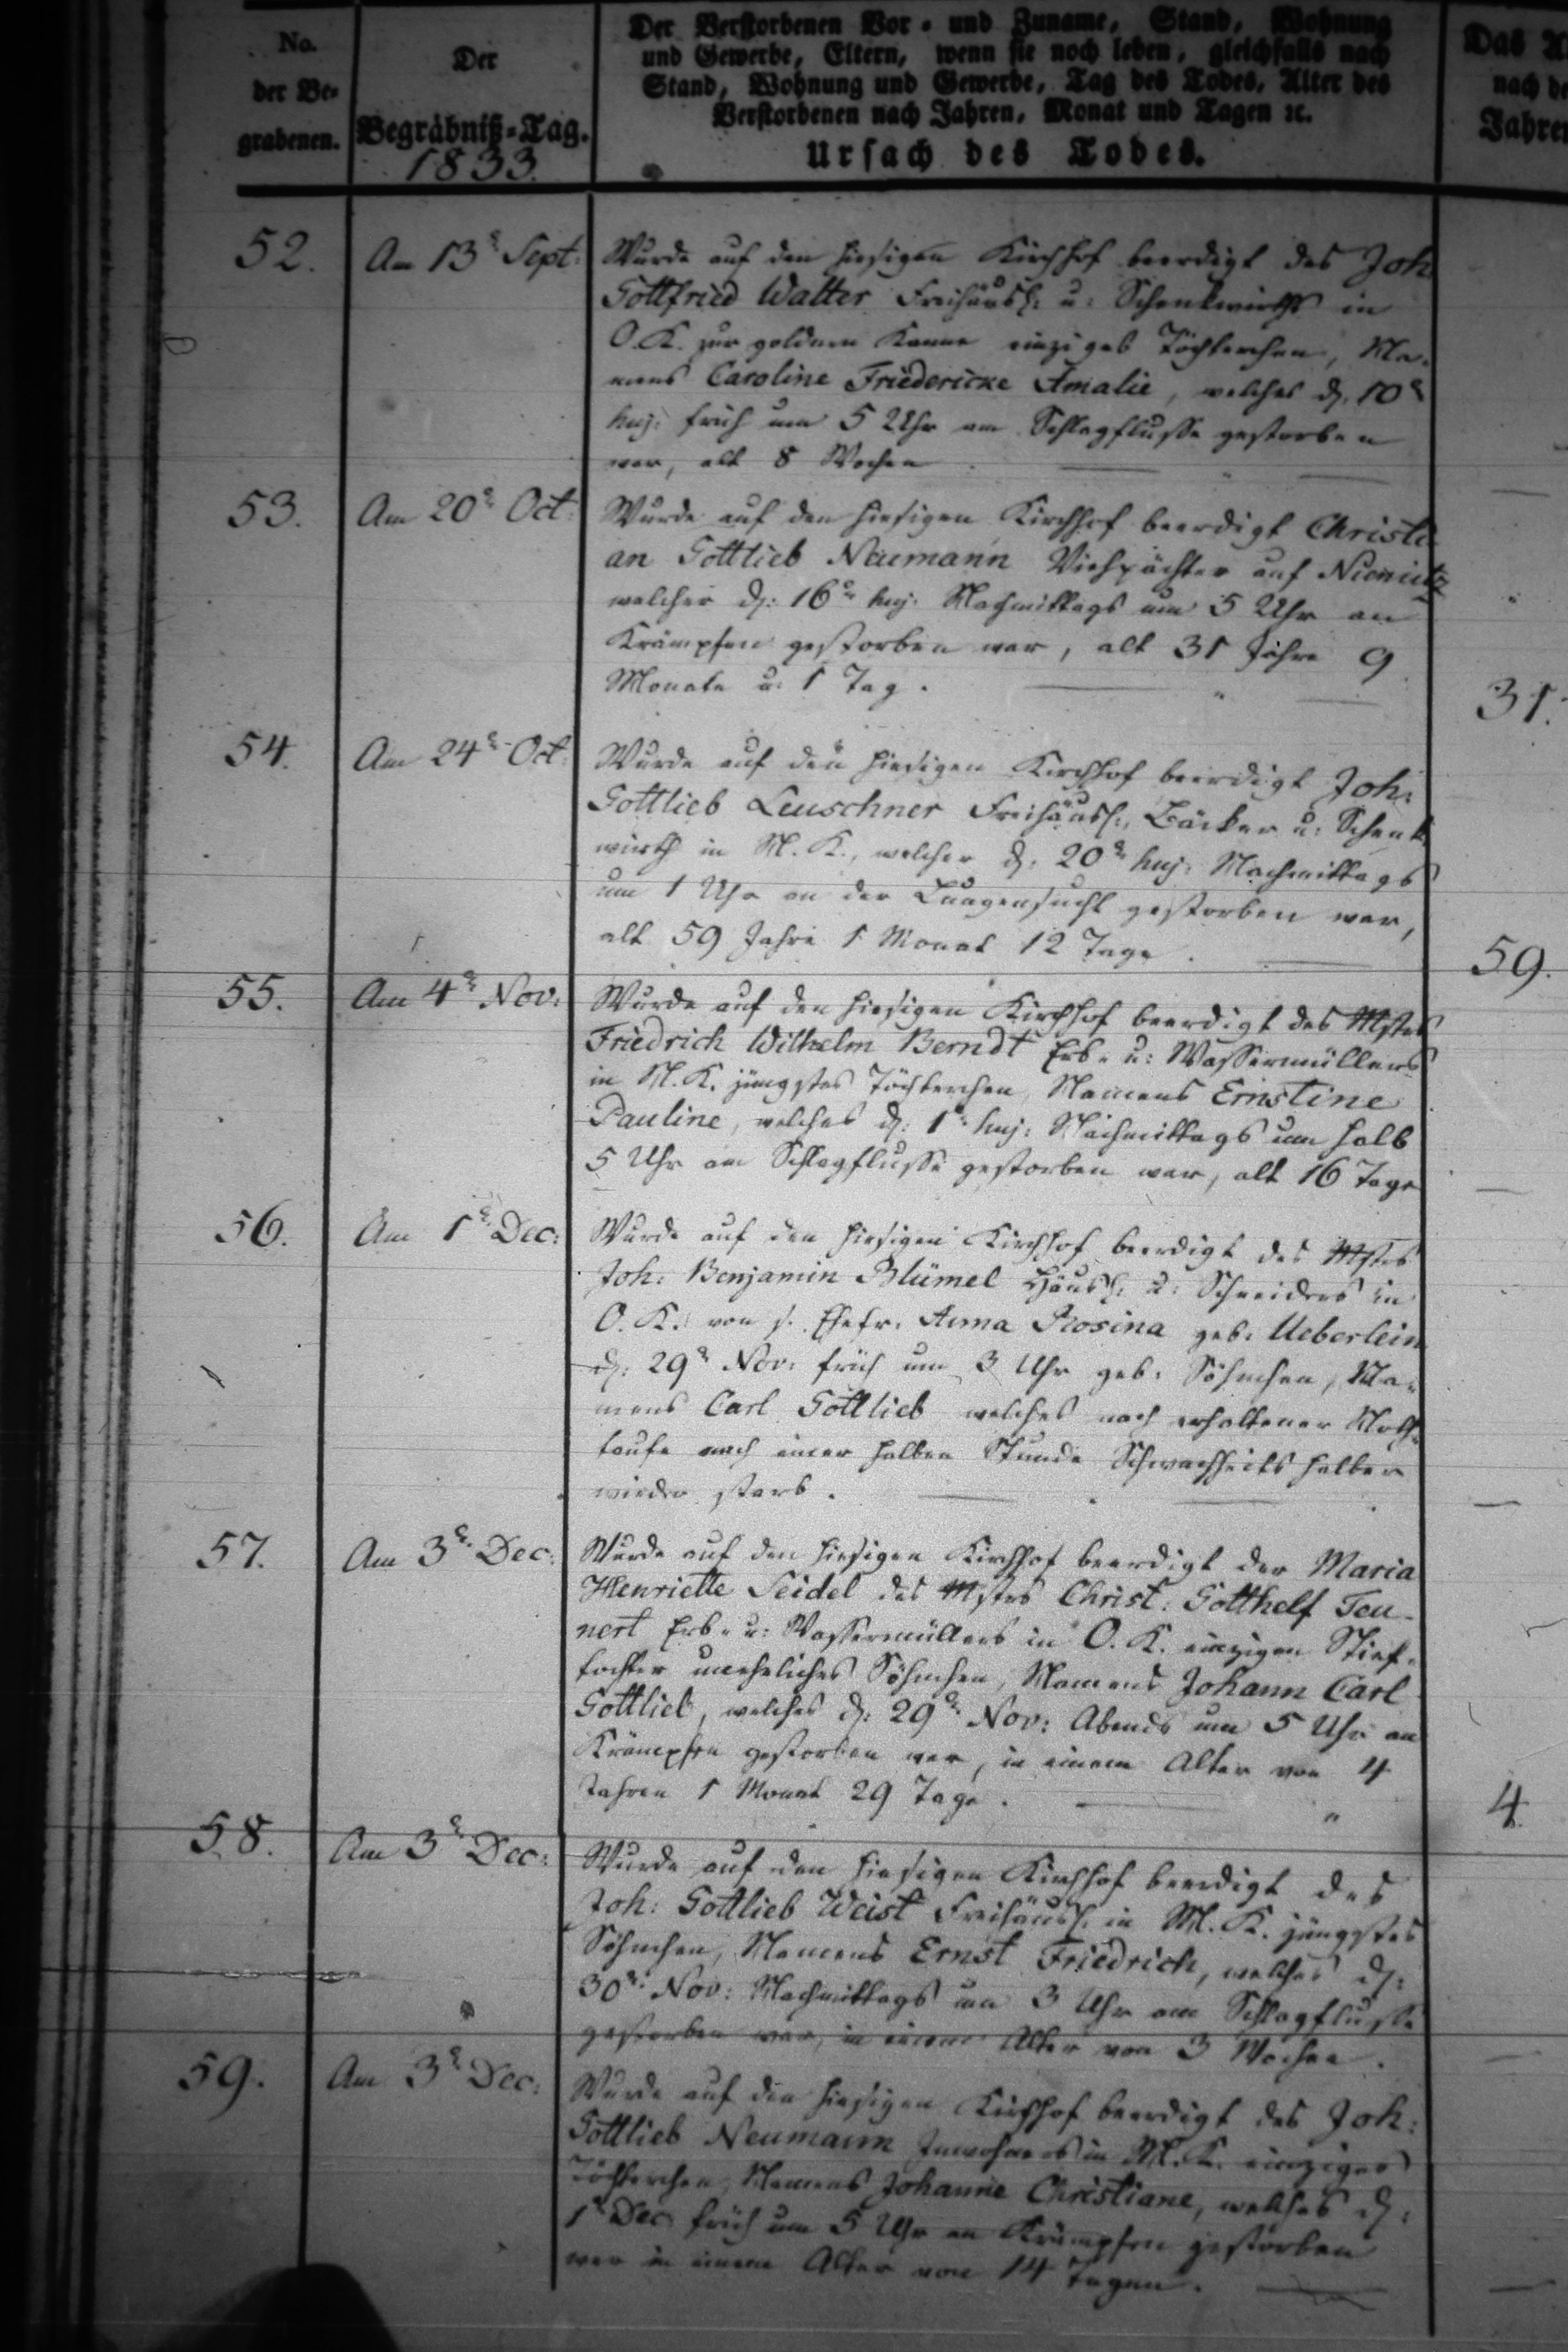 No.
der Be-
grabenen.
Der
Begräbniß-Tag.
1833.
Der Verstorbenen Vor- und Zuname, Stand, Wohnung
und Gewerbe, Eltern, wenn sie noch leben, gleichfalls nach
Stand, Wohnung und Gewerbe, Tag des Todes, Alter des
Verstorbenen nach Jahren, Monat und Tagen ꝛc.
Ursach des Todes.
Das
nach de
Jahren
52.
Am 13t Sept:
Wurde auf den hiesigen Kirchhof beerdigt des Joh.
Gottfried Walter Freihäusl: u: Schenkwirths in
O. K. zur goldnen Kanne einziges Töchterchen, Na-
mens Caroline Friedericke Amalie, welches d. 10t
huj: früh um 5 Uhr am Schlagflusse gestorben
war, alt 8 Wochen
53.
Am 20t Oct:
Wurde auf den hiesigen Kirchhof beerdigt Christi-
an Gottlieb Neumann Viehpächter auf
welcher d: 16t huj. Nachmittags um 5 Uhr an
Krämpfen gestorben war, alt 31 Jahre 9
Monate u: 1 Tag.
31.
54.
Am 24t Oct:
Wurde auf den hiesigen Kirchhof beerdigt Joh:
Gottlieb Leuschner Freihäusl:, Bäcker u: Schenk
wirth in M. K., welcher d: 20t huj: Nachmittags
um 1 Uhr an der Lungensucht gestorben war,
alt 59 Jahre 1 Monat 12 Tage.
59.
55.
Am 4t Nov:
Wurde auf den hiesigen Kirchhof beerdigt des Mstrs
Friedrich Wilhelm Berndt Erb- u: Wassermüllers
in M. K. jüngstes Töchterchen, Namens Ernstine
Pauline, welches d: 1t huj: Nachmittags um halb
5 Uhr am Schlagflusse gestorben war, alt 16 Tage
56.
Am 1t Dec:
Wurde auf den hiesigen Kirchhof beerdigt des Mstrs
Joh: Benjamin Blümel Häusl: u: Schneiders in
O. K. von s. Ehefr. Anna Rosina geb: Ueberlein
d: 29t Nov: früh um 3 Uhr geb: Söhnchen, Na-
mens Carl Gottlieb welches nach erhaltener Noth-
taufe nach einer halben Stunde Schwachheits halber
wieder starb.
57.
Am 3t Dec:
Wurde auf den hiesigen Kirchhof beerdigt der Maria
Henriette Seidel des Mstrs Christ: Gotthelf Teu-
nert Erb- u: Wassermüllers in O. K. einzigen Stief-
tochter uneheliches Söhnchen, Namens Johann Carl
Gottlieb, welches d: 29t Nov: Abends um 5 Uhr an
Krämpfen gestorben war, in einem Alter von 4
Jahren 1 Monat 29 Tage.
4.
58.
Am 3t Dec:
Wurde auf den hiesigen Kirchhof beerdigt des
Joh: Gottlieb Weist Freihäusl: in M. K. jüngstes
Söhnchen, Namens Ernst Friedrich, welches d:
30t Nov: Nachmittags um 3 Uhr am Schlagflusse
gestorben war, in einem Alter von 3 Wochen.
59.
Am 3t Dec:
Wurde auf den hiesigen Kirchhof beerdigt des Joh:
Gottlieb Neumann Inwohners in M. K. einziges
Töchterchen, Namens Johanne Christiane, welches d:
1t Dec: früh um 5 Uhr an Krämpfen gestorben
war in einem Alter von 14 Tagen.